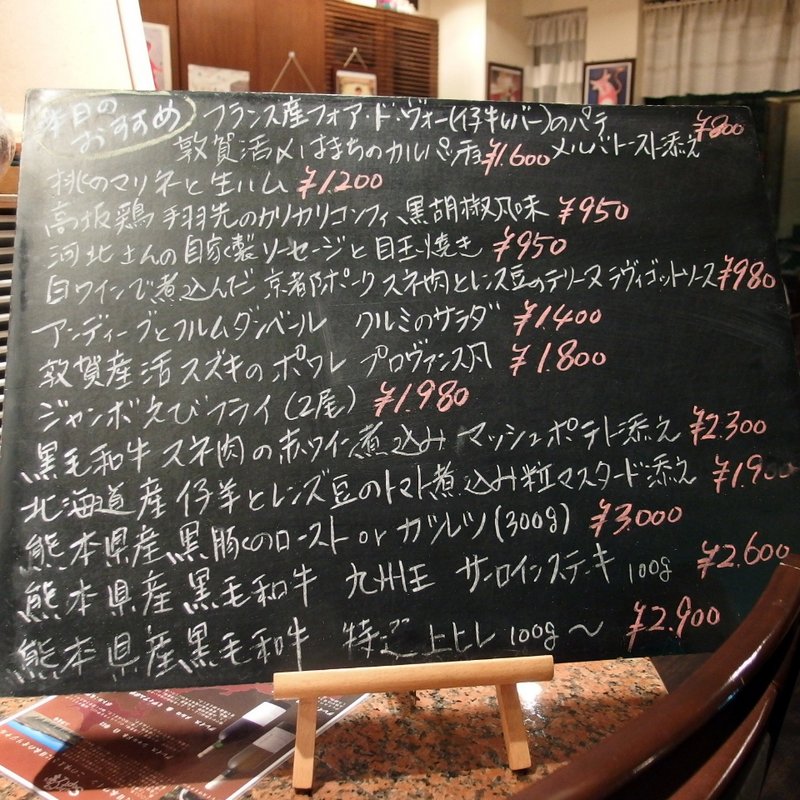 本日のおすすめ
フランス産フォア・ド・ヴォー(仔牛レバー)のパテ ¥800
メルバトースト添え
敦賀活〆はまちのカルパッチョ ¥1,600
桃のマリネと生ハム ¥1200
高坂鶏 手羽先のカリカリコンフィ、黒胡椒風味 ¥950
河北さんの自家製ソーセージと目玉焼き ¥950
白ワインで煮込んだ 京都ポーク スネ肉とレンズ豆のテリーヌ ラヴィゴットソース ¥980
アンディーブとフルムダンベール クルミのサラダ ¥1,400
敦賀産活スズキのポワレ プロヴァンス風 ¥1,800
ジャンボえびフライ(2尾) ¥1,980
黒毛和牛 スネ肉の赤ワイン煮込み マッシュポテト添え ¥2,300
北海道産 仔羊とレンズ豆のトマト煮込み 粒マスタード添え ¥1,900
熊本県産 黒豚のロースト or カツレツ(300g) ¥3,000
熊本県産 黒毛和牛 九州王 サーロインステーキ 100g ¥2,600
熊本県産黒毛和牛 特選上ヒレ 100g〜 ¥2,900